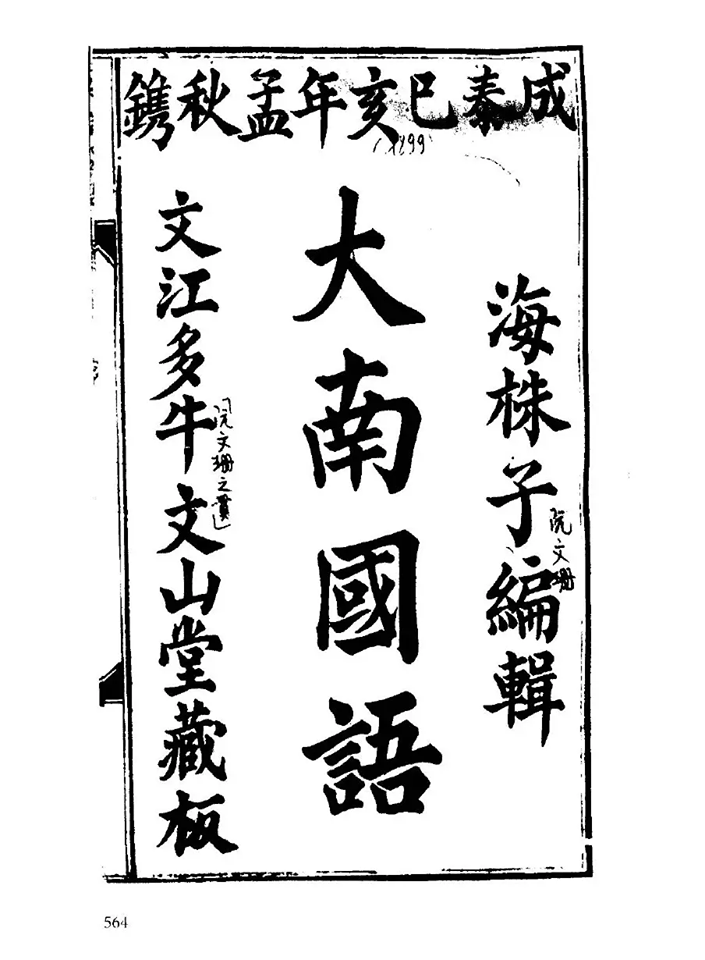 成泰巳亥年孟秋鐫
(1899)
海株子編輯
阮文珊
大南國語
文江多牛文山堂藏板
阮文珊之貫
564